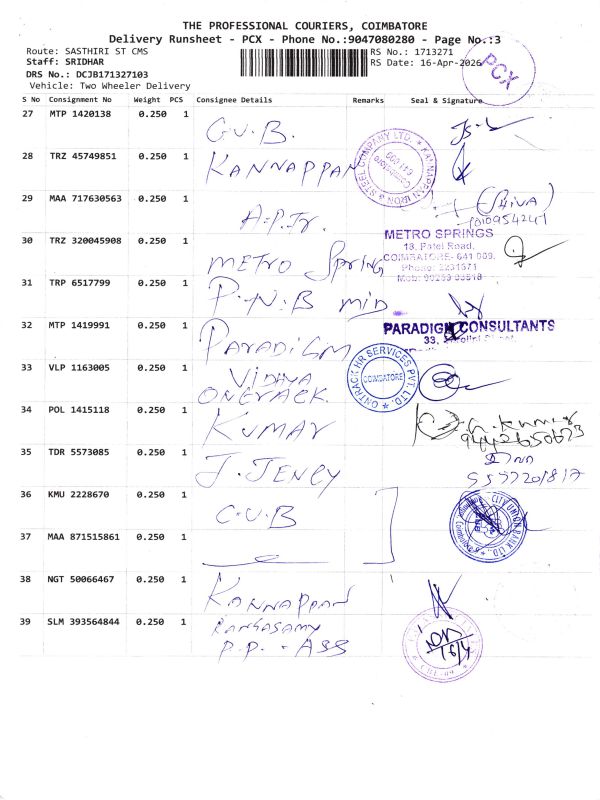 THE PROFESSIONAL COURIERS, COIMBATORE
Delivery Runsheet - PCX - Phone No.:9047080280 - Page No.:3
Route: SASTHIRI ST CMS
Staff: SRIDHAR
DRS No.: DCJB171327103
Vehicle: Two Wheeler Delivery
RS No.: 1713271
RS Date: 16-Apr-2026
PCX
S No Consignment No Weight PCS Consignee Details Remarks Seal & Signature
27 MTP 1420138 0.250 1 C.U.B.
28 TRZ 45749851 0.250 1 KANNAPPAN
KANNAPPAN IRON & STEEL COMPANY LTD.
Coimbatore
641 009
29 MAA 717630563 0.250 1 A.P.Jr. (Shiva)
30 TRZ 320045908 0.250 1 METRO Spring
METRO SPRINGS
18, Patel Road,
COIMBATORE- 641 009.
Phone: 2231571
31 TRP 6517799 0.250 1 P.N.B mid
32 MTP 1419991 0.250 1 PARADIGM
PARADIGM CONSULTANTS
33,
33 VLP 1163005 0.250 1 VIDHYA
ONERACK.
ONTRACK HR SERVICES PVT. LTD.
COIMBATORE
34 POL 1415118 0.250 1 KUMAR
Kumar
9442650673
35 TDR 5573085 0.250 1 J. JENCY
36 KMU 2228670 0.250 1 C.U.B
CITY UNION BANK LTD.
37 MAA 871515861 0.250 1
38 NGT 50066467 0.250 1 KANNAPPAN
39 SLM 393564844 0.250 1 RANGASAMY
P.P. + ASS